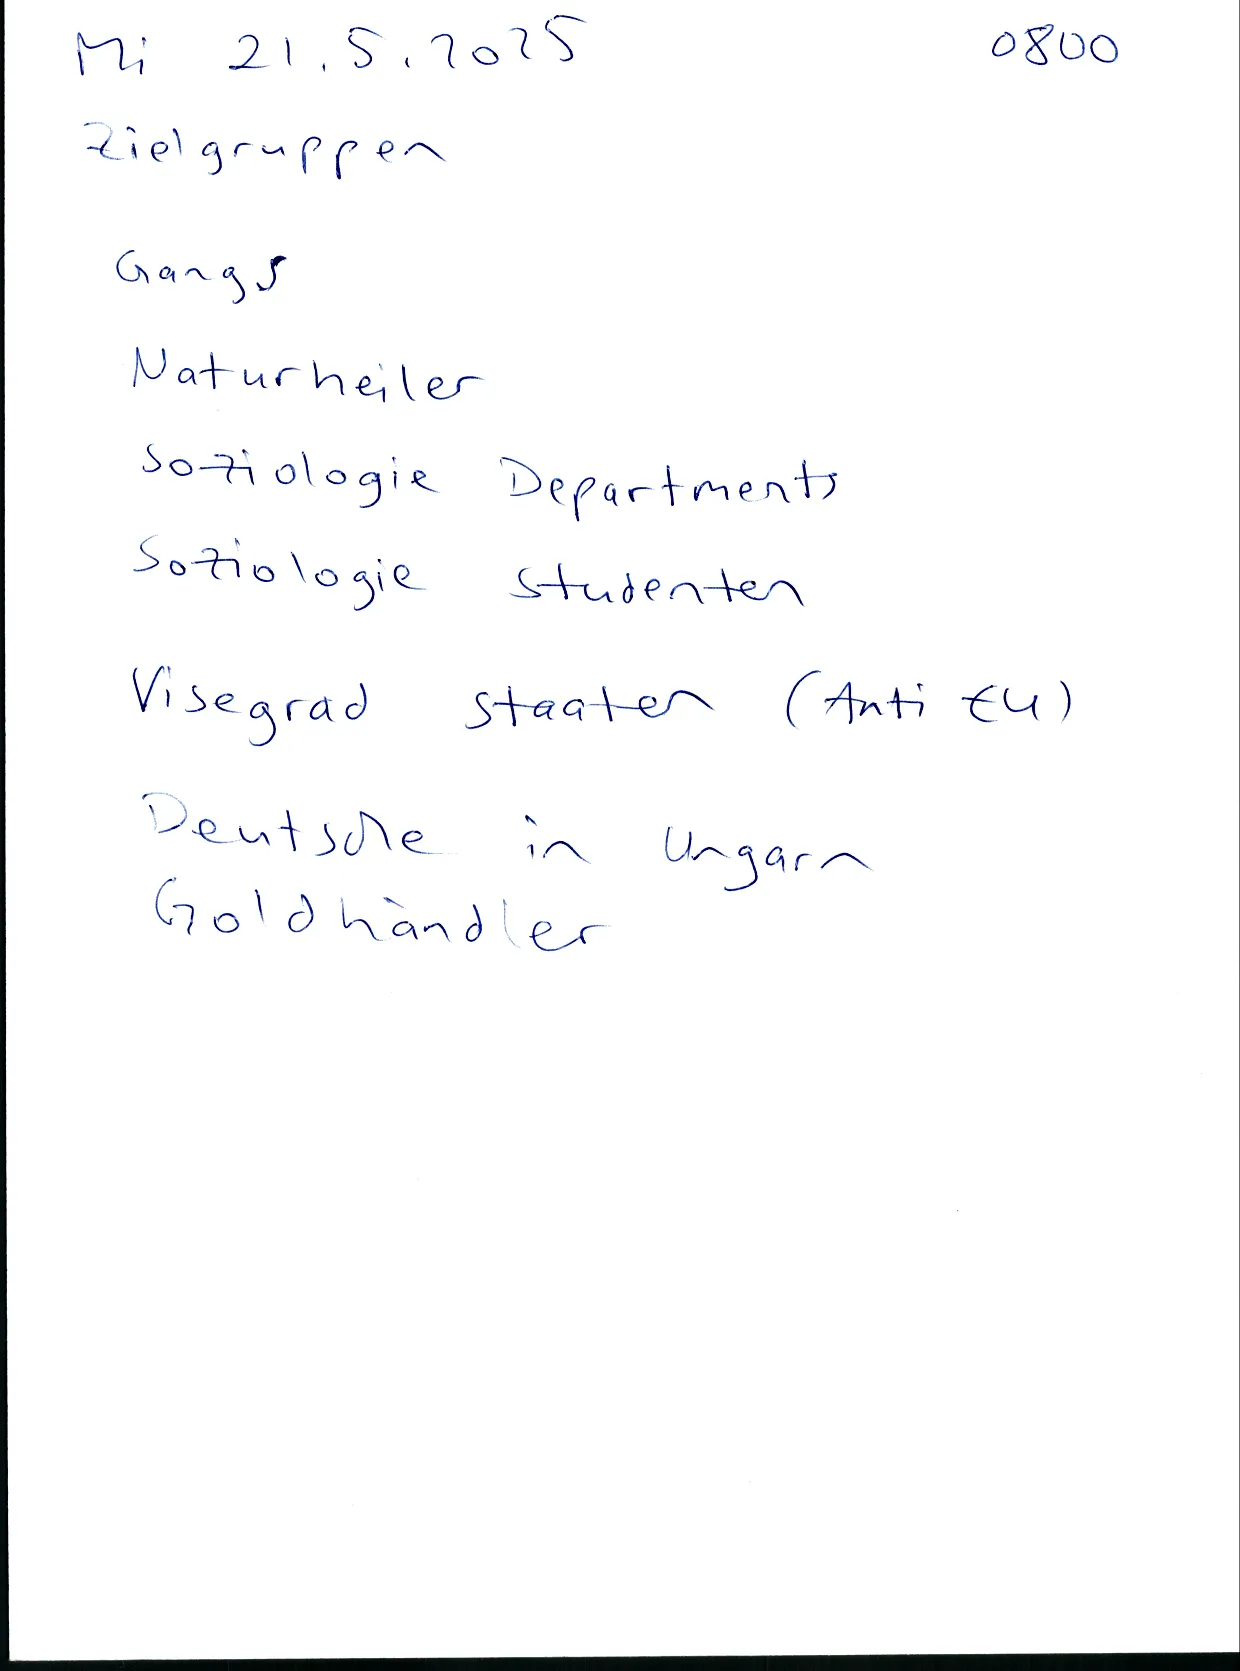 Mi 21.5.2025 0800
Zielgruppen
Gangs
Naturheiler
Soziologie Departments
Soziologie Studenten
Visegrad Staaten (Anti EU)
Deutsche in Ungarn
Goldhändler